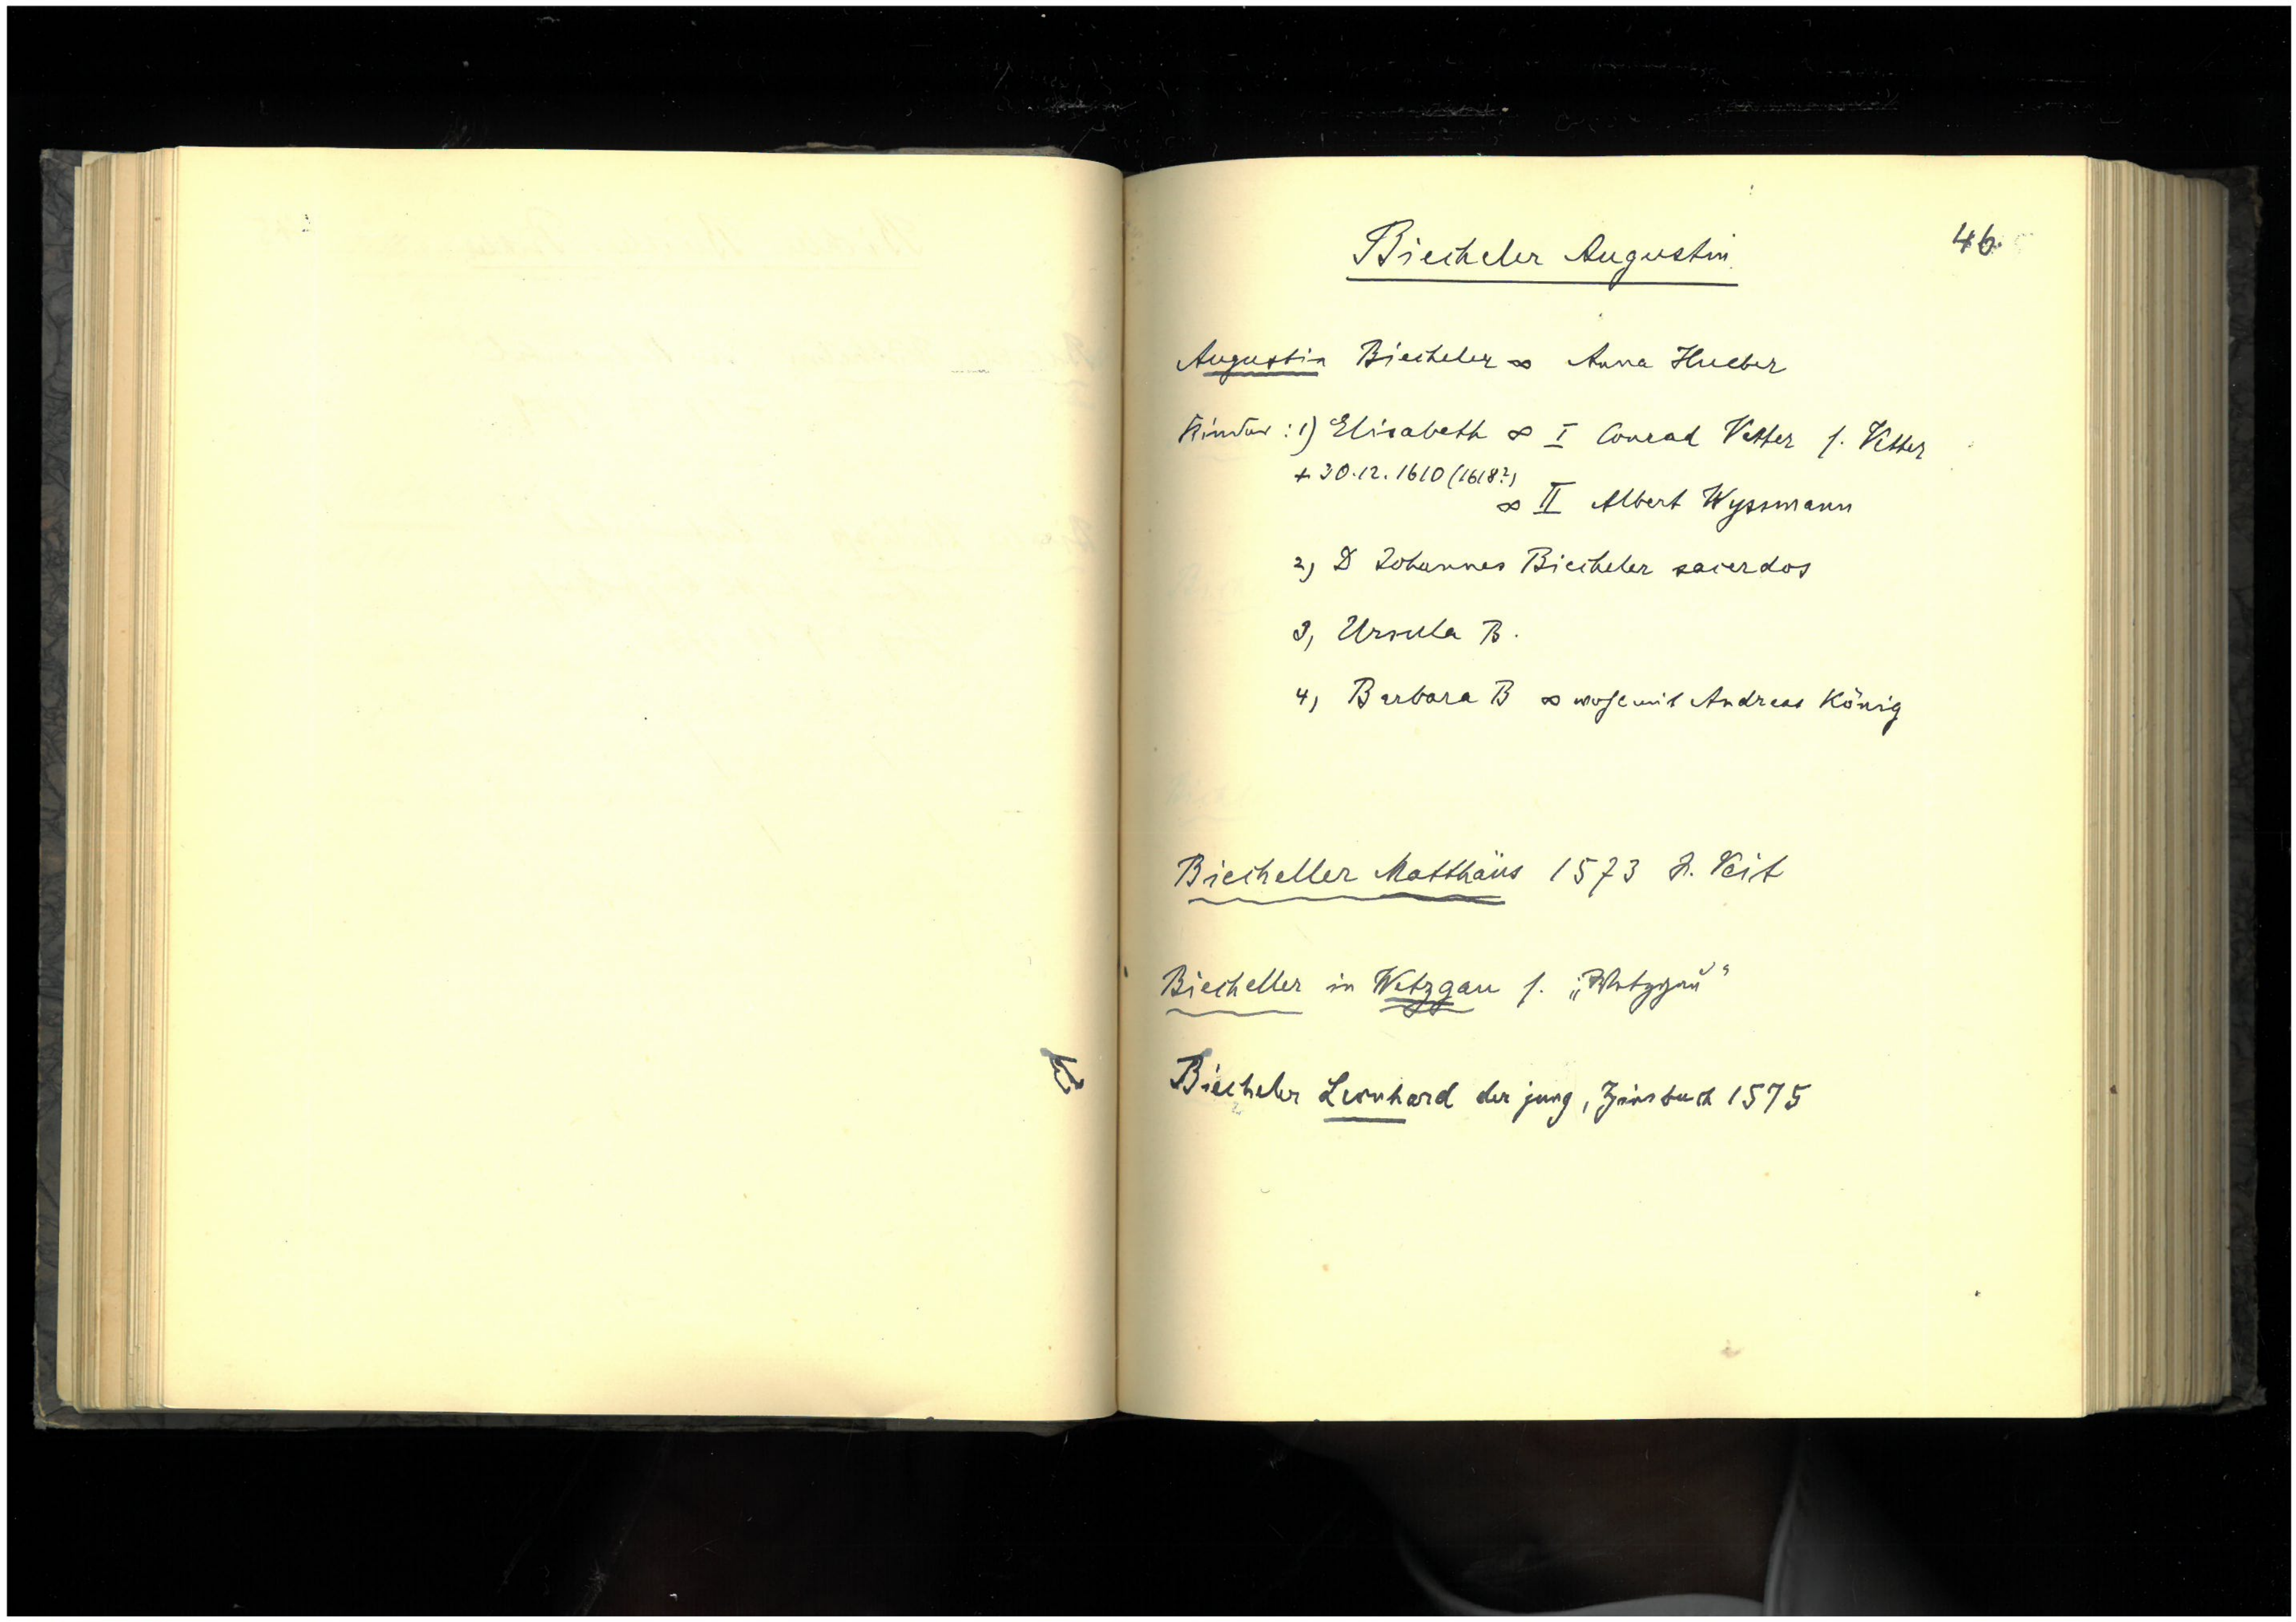 Biecheler Augustin 46.
Augustin Biecheler ∞ Anna Hueber
Kinder : 1) Elisabeth ∞ I Conrad Vetter s. Vetter
+ 30.12.1610 (1618?)
∞ II Albert Wyssmann
2) D Johannes Biecheler sacerdos
3, Ursula B.
4, Barbara B ∞ wohl mit Andreas König
Biecheller Matthäus 1573 S. Veit
Biecheller in Wetzgau s. „Wetzgau“
Biecheler Leonhard der jung, Zinsbuch 1575